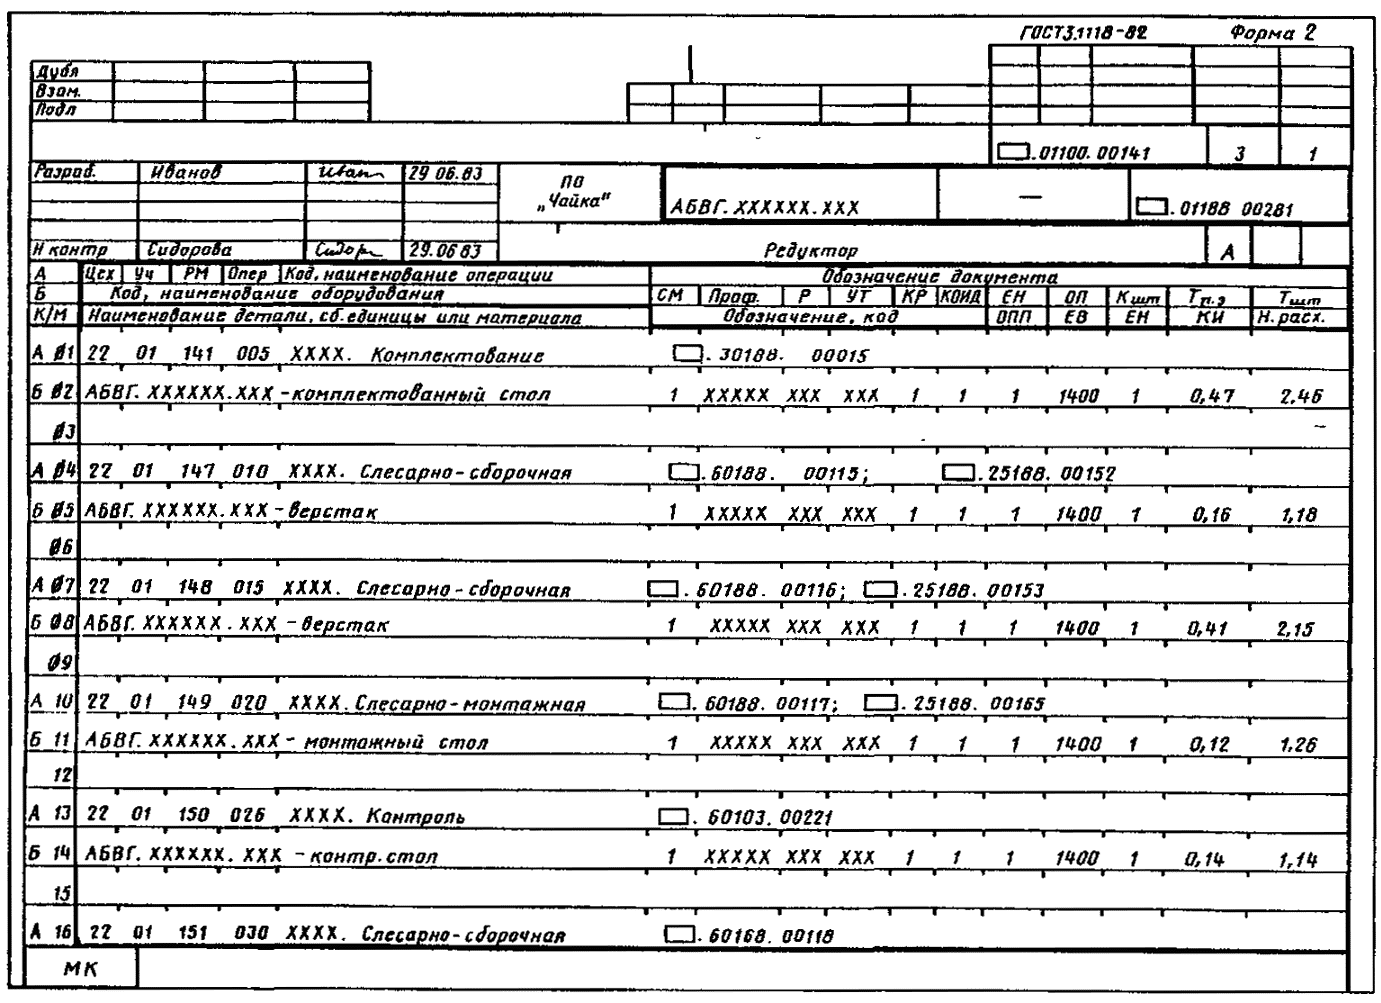 ГОСТ 3.1118-82 Форма 2
Дубл
Взам.
Подл
.01100.00141 3 1
Разраб. Иванов Иван 29 06.83
ПО
„Чайка"
АБВГ.XXXXXX.XXX — .01188 00281
Н контр Сидорова Сидор 29.06 83 Редуктор А
А Цех Уч РМ Опер Код, наименование операции Обозначение документа
Б Код, наименование оборудования СМ Проф. Р УТ КР КОИД ЕН ОП К шт Тп.з Тшт
К/М Наименование детали, сб.единицы или материала Обозначение, код ОПП ЕВ ЕН КИ Н.расх.
А 01 22 01 141 005 XXXX. Комплектование .30188. 00015
Б 02 АБВГ.XXXXXX.XXX-комплектованный стол 1 XXXXX XXX XXX 1 1 1 1400 1 0,47 2,46
03
А 04 22 01 147 010 XXXX. Слесарно-сборочная .60188. 00115; .25188.00152
Б 05 АБВГ.XXXXXX.XXX-верстак 1 XXXXX XXX XXX 1 1 1 1400 1 0,16 1,18
06
А 07 22 01 148 015 XXXX. Слесарно-сборочная .60188.00116; .25188.00153
Б 08 АБВГ.XXXXXX.XXX-верстак 1 XXXXX XXX XXX 1 1 1 1400 1 0,41 2,15
09
А 10 22 01 149 020 XXXX.Слесарно-монтажная .60188.00117; .25188.00165
Б 11 АБВГ.XXXXXX.XXX- монтажный стол 1 XXXXX XXX XXX 1 1 1 1400 1 0,12 1,26
12
А 13 22 01 150 026 XXXX. Контроль .60103.00221
Б 14 АБВГ.XXXXXX.XXX -контр.стол 1 XXXXX XXX XXX 1 1 1 1400 1 0,14 1,14
15
А 16 22 01 151 030 XXXX. Слесарно-сборочная .60168.00118
МК